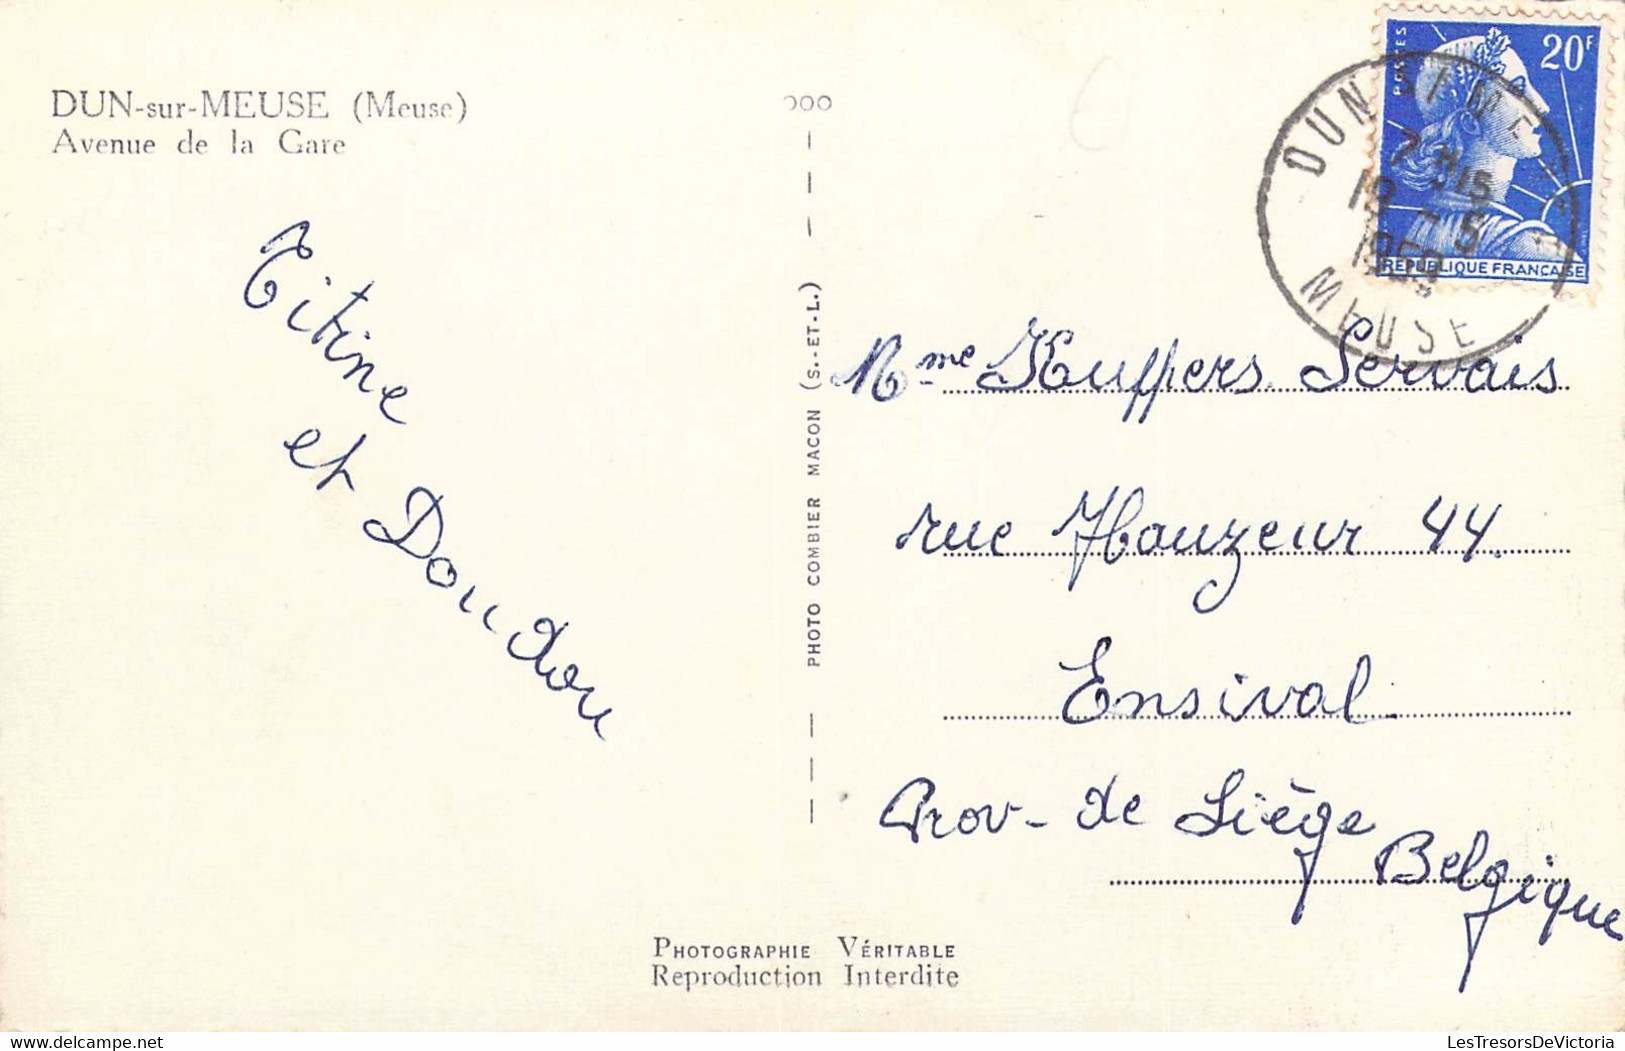 DUN-sur-MEUSE (Meuse)
Avenue de la Gare
Titine
et Doudou
PHOTO COMBIER MACON (S.-ET-L.)
POSTES
20F
REPUBLIQUE FRANÇAISE
DUN S/ MEUSE
7 H15
1959
MEUSE
Mme Kuffers Servais
rue Hauzeur 44.
Ensival
Prov- de Liège
Belgique
PHOTOGRAPHIE VÉRITABLE
Reproduction Interdite
delcampe.net
LesTresorsDeVictoria